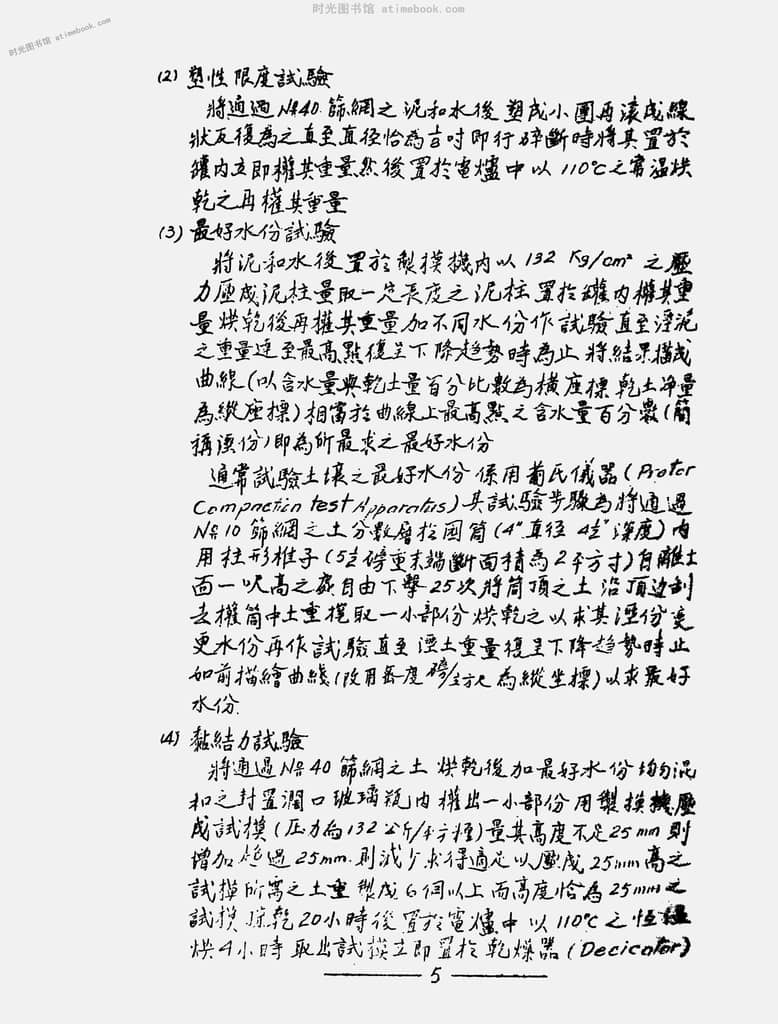 时光图书馆 atimebook.com
时光图书馆 atimebook.com
(2) 塑性限度試驗
將通過 No40 篩網之泥和水後塑成小團再滾成線
狀反復為之直至直径恰為吋即行碎斷時將其置於
罐内立即權其重量然後置於電爐中以 110°C 之常温烘
乾之再權其重量
(3) 最好水份試驗
將泥和水後置於製模機内以 132 Kg/cm² 之壓
力壓成泥柱量取一定長度之泥柱置於罐内權其重
量烘乾後再權其重量加不同水份作試驗直至溼泥
之重量達至最高點復呈下降趋勢時為止將結果描成
曲線(以含水量與乾土量百分比數為横座標乾土净量
為縱座標)相當於曲線上最高點之含水量百分數(簡
稱溼份)即為所最求之最好水份
通常試驗土壤之最好水份係用蒲氏儀器(Protor
Compaction test Apparatus)其試驗步驟為將通過
No 10 篩網之土分數層於圆筒(4"直径 4½"深度)内
用柱形椎子(5½磅重末端斷面積為2平方寸)自離土
面一呎高之處自由下擊25次將筒頂之土沿頂边刮
去權筒中土重提取一小部份烘乾之以求其溼份变
更水份再作試驗直至溼土重量復呈下降趋勢時止
如前描繪曲綫(改用密度磅/立方尺為縱坐標)以求最好
水份.
(4) 黏結力試驗
將通過 No 40 篩網之土烘乾後加最好水份均匀混
和之封置濶口玻璃瓶内權出一小部份用製模機壓
成試模(压力為132公斤/平方糎)量其高度不足25mm則
增加超過25mm.則減少求得適足以壓成25mm高之
試模所需之土重製成6個以上而高度恰為25mm之
試模 乾20小時後置於電爐中以110°C之恒温
烘4小時取出試模立即置於乾燥器(Decicator)
5